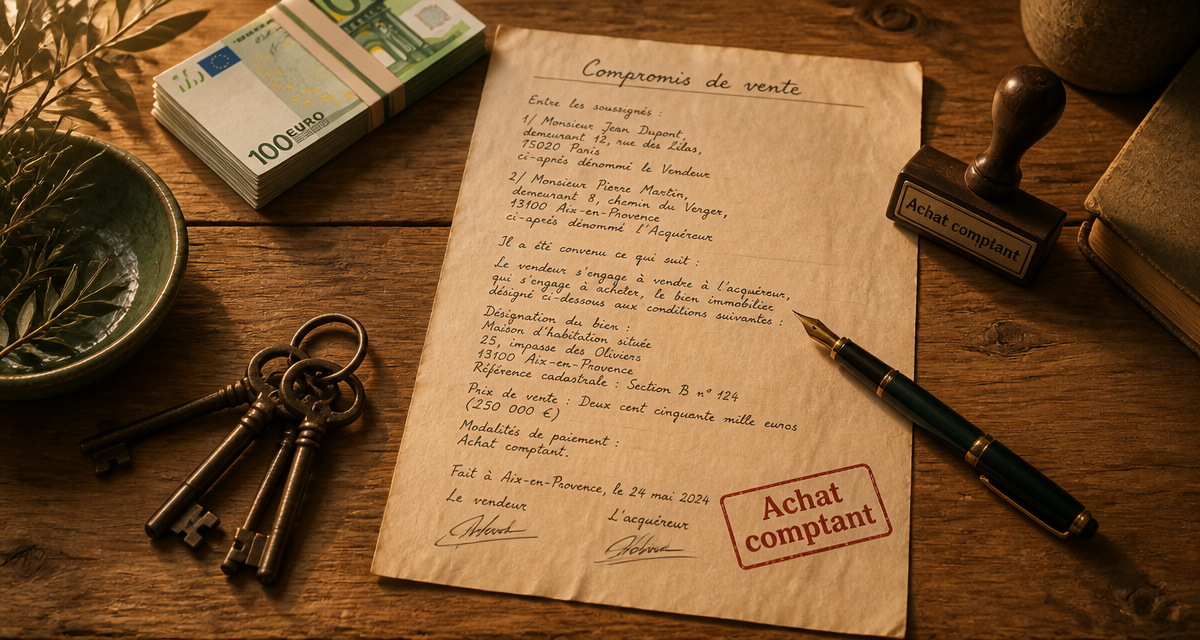 100 EURO
Compromis de vente
Entre les soussignés :
1/ Monsieur Jean Dupont,
demeurant 12, rue des Lilas,
75020 Paris
ci-après dénommé le Vendeur
2/ Monsieur Pierre Martin,
demeurant 8, chemin du Verger,
13100 Aix-en-Provence
ci-après dénommé l'Acquéreur
Il a été convenu ce qui suit :
Le vendeur s'engage à vendre à l'acquéreur,
qui s'engage à acheter, le bien immobilier
désigné ci-dessous aux conditions suivantes :
Désignation du bien :
Maison d'habitation située
25, impasse des Oliviers
13100 Aix-en-Provence
Référence cadastrale : Section B n° 124
Prix de vente : Deux cent cinquante mille euros
(250 000 €)
Modalités de paiement :
Achat comptant.
Fait à Aix-en-Provence, le 24 mai 2024
Le vendeur
L'acquéreur
Achat
comptant
Achat comptant